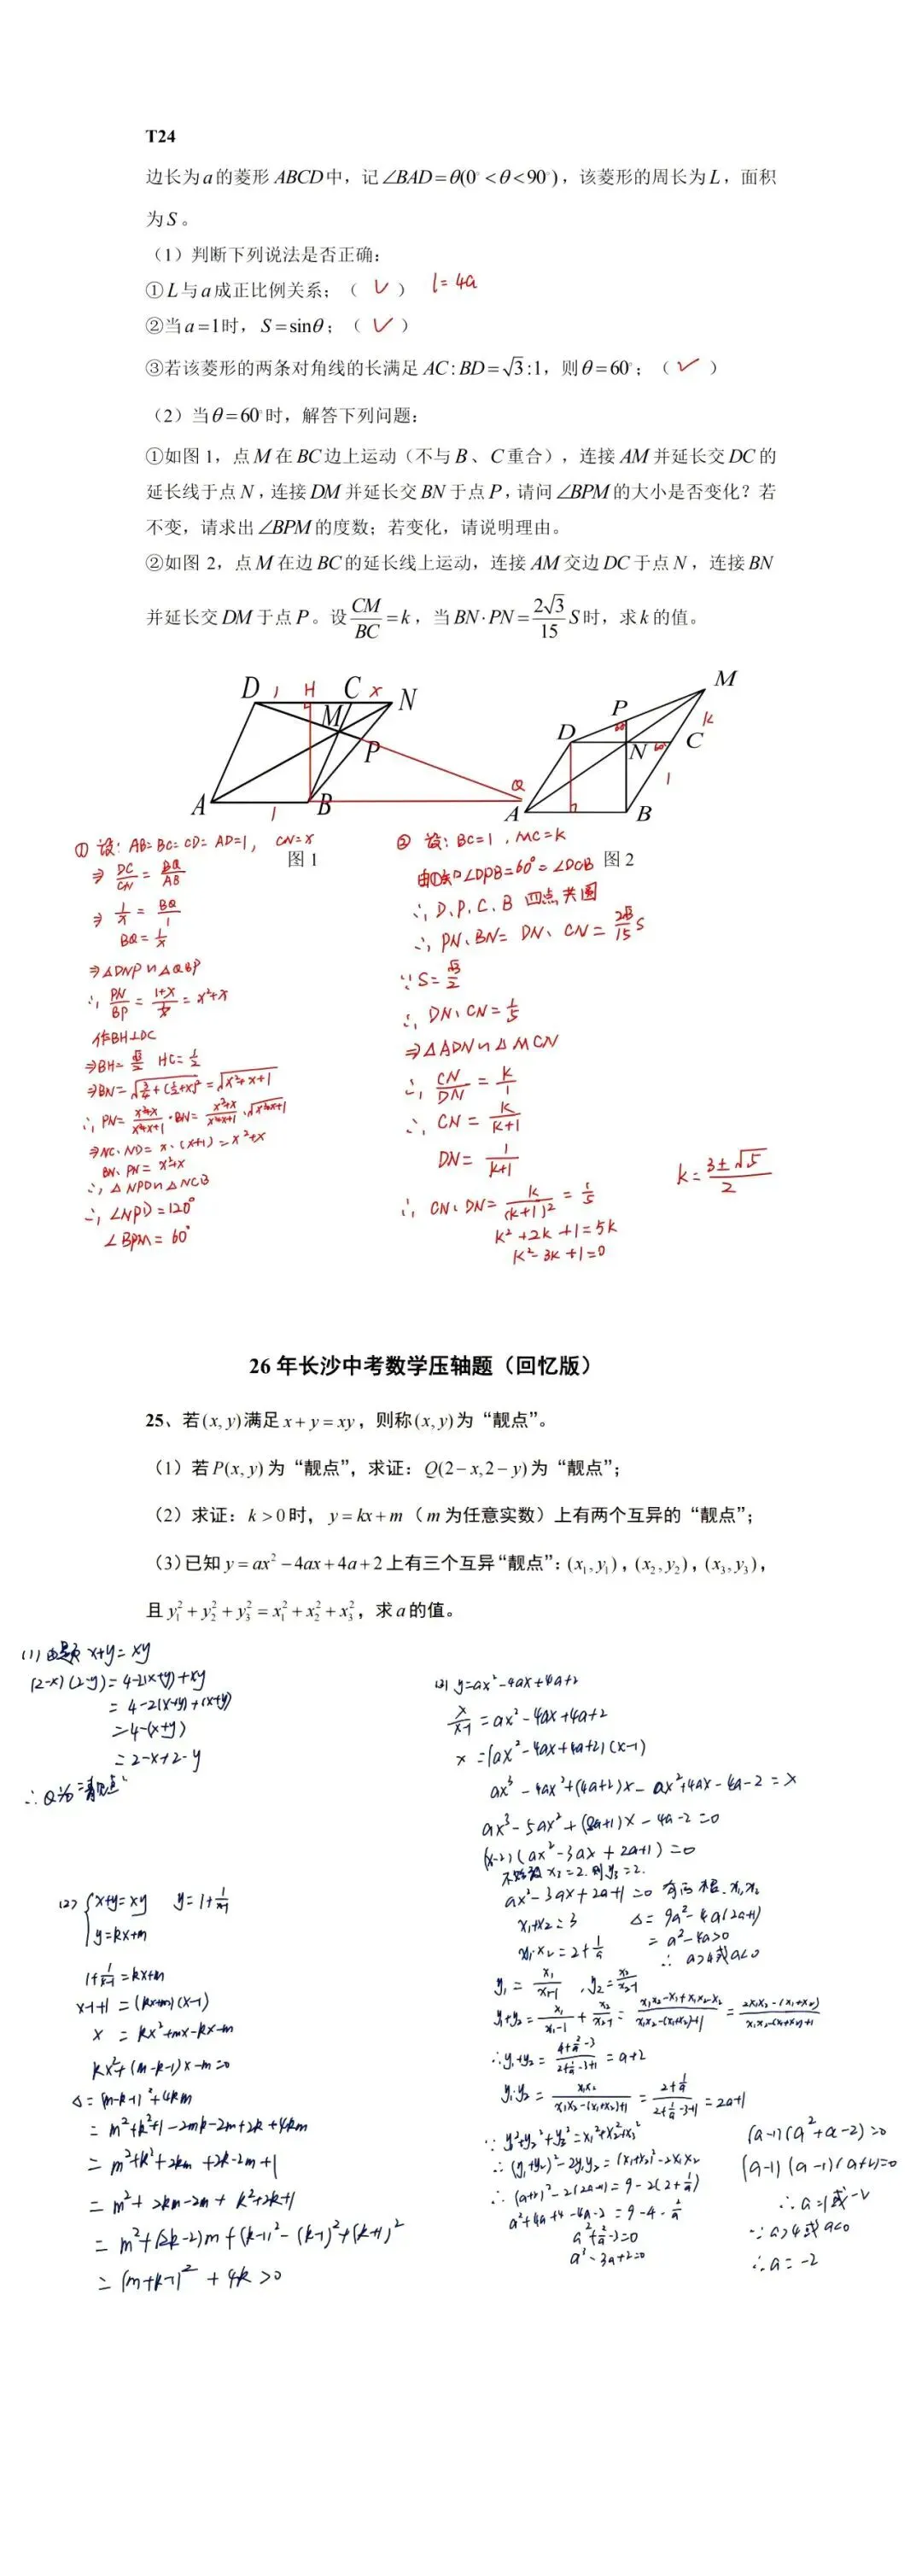 T24
边长为a的菱形ABCD中，记∠BAD=θ(0°<θ<90°)，该菱形的周长为L，面积
为S。
（1）判断下列说法是否正确：
①L与a成正比例关系；（ ✓ ） l=4a
②当a=1时，S=sinθ；（ ✓ ）
③若该菱形的两条对角线的长满足AC:BD=√3:1，则θ=60°；（ ✓ ）
（2）当θ=60°时，解答下列问题：
①如图1，点M在BC边上运动（不与B、C重合），连接AM并延长交DC的
延长线于点N，连接DM并延长交BN于点P，请问∠BPM的大小是否变化？若
不变，请求出∠BPM的度数；若变化，请说明理由。
②如图2，点M在边BC的延长线上运动，连接AM交边DC于点N，连接BN
并延长交DM于点P。设CM/BC=k，当BN·PN=2√3/15 S时，求k的值。
D 1 H C x N
M
P
A 1 B Q
图1
M
P k
D N 60° C
1
A B
图2
① 设：AB=BC=CD=AD=1，CN=x
⇒ DC/CN = BQ/AB
⇒ 1/x = BQ/1
BQ=1/x
⇒△DNP∽△QBP
∴ PN/BP = (1+x)/(1/x) = x²+x
作BH⊥DC
⇒BH=√3/2 HC=1/2
⇒BN=√(3/4+(1/2+x)²)=√(x²+x+1)
∴ PN=(x²+x)/(x²+x+1)·BN=(x²+x)/(x²+x+1)·√(x²+x+1)
⇒NC·ND=x·(x+1)=x²+x
BN·PN=x²+x
∴ △NPD∽△NCB
∴ ∠NPD=120°
∠BPM=60°
② 设：BC=1，MC=k
由①知∠DPB=60°=∠DCB
∴ D、P、C、B 四点共圆
∴ PN·BN=DN·CN=2√3/15 S
∵S=√3/2
∴ DN·CN=1/5
⇒△ADN∽△MCN
∴ CN/DN=k/1
∴ CN=k/(k+1)
DN=1/(k+1)
∴ CN·DN=k/(k+1)²=1/5
k²+2k+1=5k
k²-3k+1=0
k=(3±√5)/2
26年长沙中考数学压轴题（回忆版）
25、若(x,y)满足x+y=xy，则称(x,y)为“靓点”。
（1）若P(x,y)为“靓点”，求证：Q(2-x,2-y)为“靓点”；
（2）求证：k>0时，y=kx+m（m为任意实数）上有两个互异的“靓点”；
（3）已知y=ax²-4ax+4a+2上有三个互异“靓点”：(x₁,y₁)，(x₂,y₂)，(x₃,y₃)，
且y₁²+y₂²+y₃²=x₁²+x₂²+x₃²，求a的值。
(1) 由题 x+y=xy
(2-x)(2-y)=4-2(x+y)+xy
=4-2(x+y)+(x+y)
=4-(x+y)
=2-x+2-y
∴Q为“靓点”
(2) {x+y=xy y=1+1/(x-1)
y=kx+m
1+1/(x-1)=kx+m
x-1+1=(kx+m)(x-1)
x=kx²+mx-kx-m
kx²+(m-k-1)x-m=0
Δ=(m-k-1)²+4km
=m²+k²+1-2mk-2m+2k+4km
=m²+k²+2km+2k-2m+1
=m²+2km-2m+k²+2k+1
=m²+(2k-2)m+(k-1)²-(k-1)²+(k+1)²
=(m+k-1)²+4k>0
(3) y=ax²-4ax+4a+2
x/(x-1)=ax²-4ax+4a+2
x=(ax²-4ax+4a+2)(x-1)
ax³-4ax²+(4a+2)x-ax²+4ax-4a-2=x
ax³-5ax²+(8a+1)x-4a-2=0
(x-2)(ax²-3ax+2a+1)=0
不妨设x₃=2.则y₃=2.
ax²-3ax+2a+1=0 有两根.x₁,x₂
x₁+x₂=3 Δ=9a²-4a(2a+1)
x₁·x₂=2+1/a =a²-4a>0
∴ a>4或a<0
y₁=x₁/(x₁-1)，y₂=x₂/(x₂-1)
y₁+y₂=x₁/(x₁-1)+x₂/(x₂-1)=(x₁x₂-x₁+x₁x₂-x₂)/(x₁x₂-(x₁+x₂)+1)=(2x₁x₂-(x₁+x₂))/(x₁x₂-(x₁+x₂)+1)
∴y₁+y₂=(4+2/a-3)/(2+1/a-3+1)=a+2
y₁y₂=x₁x₂/(x₁x₂-(x₁+x₂)+1)=(2+1/a)/(2+1/a-3+1)=2a+1
∵y₁²+y₂²+y₃²=x₁²+x₂²+x₃²
∴(y₁+y₂)²-2y₁y₂=(x₁+x₂)²-2x₁x₂
∴(a+2)²-2(2a+1)=9-2(2+1/a)
a²+4a+4-4a-2=9-4-2/a
a²+2/a-3=0
a³-3a+2=0
(a-1)(a²+a-2)=0
(a-1)(a-1)(a+2)=0
∴a=1或-2
∵a>4或a<0
∴a=-2